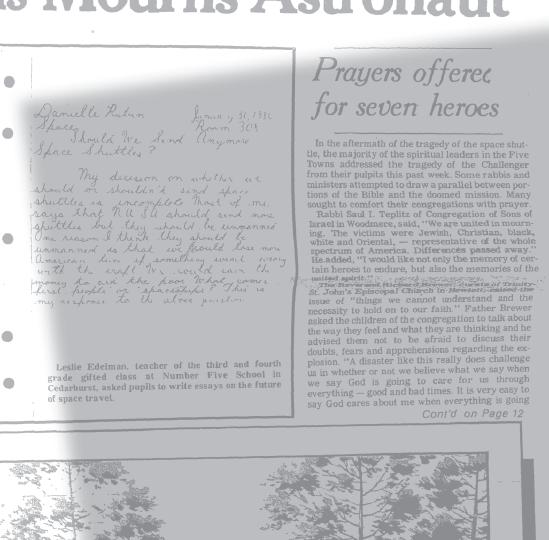 s Mourns Astronaut
Danielle Rubin
Space
January 31, 1986
Room 308
Should We Send Anymore
Space Shuttles?
My decision on whether we
should or shouldn't send space
shuttles is incomplete. Most of me
says that N.A.S.A. should send more
shuttles but they should be unmanned
One reason I think they should be
unmanned is that we would lose
American lives if something went wrong
with the craft. We would earn the
my response to the above
Leslie Edelman, teacher of the third and fourth
grade gifted class at Number Five School in
Cedarhurst, asked pupils to write essays on the future
of space travel.
Prayers offered
for seven heroes
In the aftermath of the tragedy of the space shut-
tle, the majority of the spiritual leaders in the Five
Towns addressed the tragedy of the Challenger
from their pulpits this past week. Some rabbis and
ministers attempted to draw a parallel between por-
tions of the Bible and the doomed mission. Many
sought to comfort their congregations with prayer.
Rabbi Saul I. Teplitz of Congregation of Sons of
Israel in Woodmere, said, "We are united in mourn-
ing. The victims were Jewish, Christian, black,
white and Oriental, — representative of the whole
spectrum of America. Differences passed away."
He added, "I would like not only the memory of cer-
tain heroes to endure, but also the memories of the
united spirit."
The Reverend Richard Brewer, curate of Trinity-
St. John's Episcopal Church in Hewlett, raised the
issue of "things we cannot understand and the
necessity to hold on to our faith." Father Brewer
asked the children of the congregation to talk about
the way they feel and what they are thinking and he
advised them not to be afraid to discuss their
doubts, fears and apprehensions regarding the ex-
plosion. "A disaster like this really does challenge
us in whether or not we believe what we say when
we say God is going to care for us through
everything — good and bad times. It is very easy to
say God cares about me when everything is going
Cont'd on Page 12